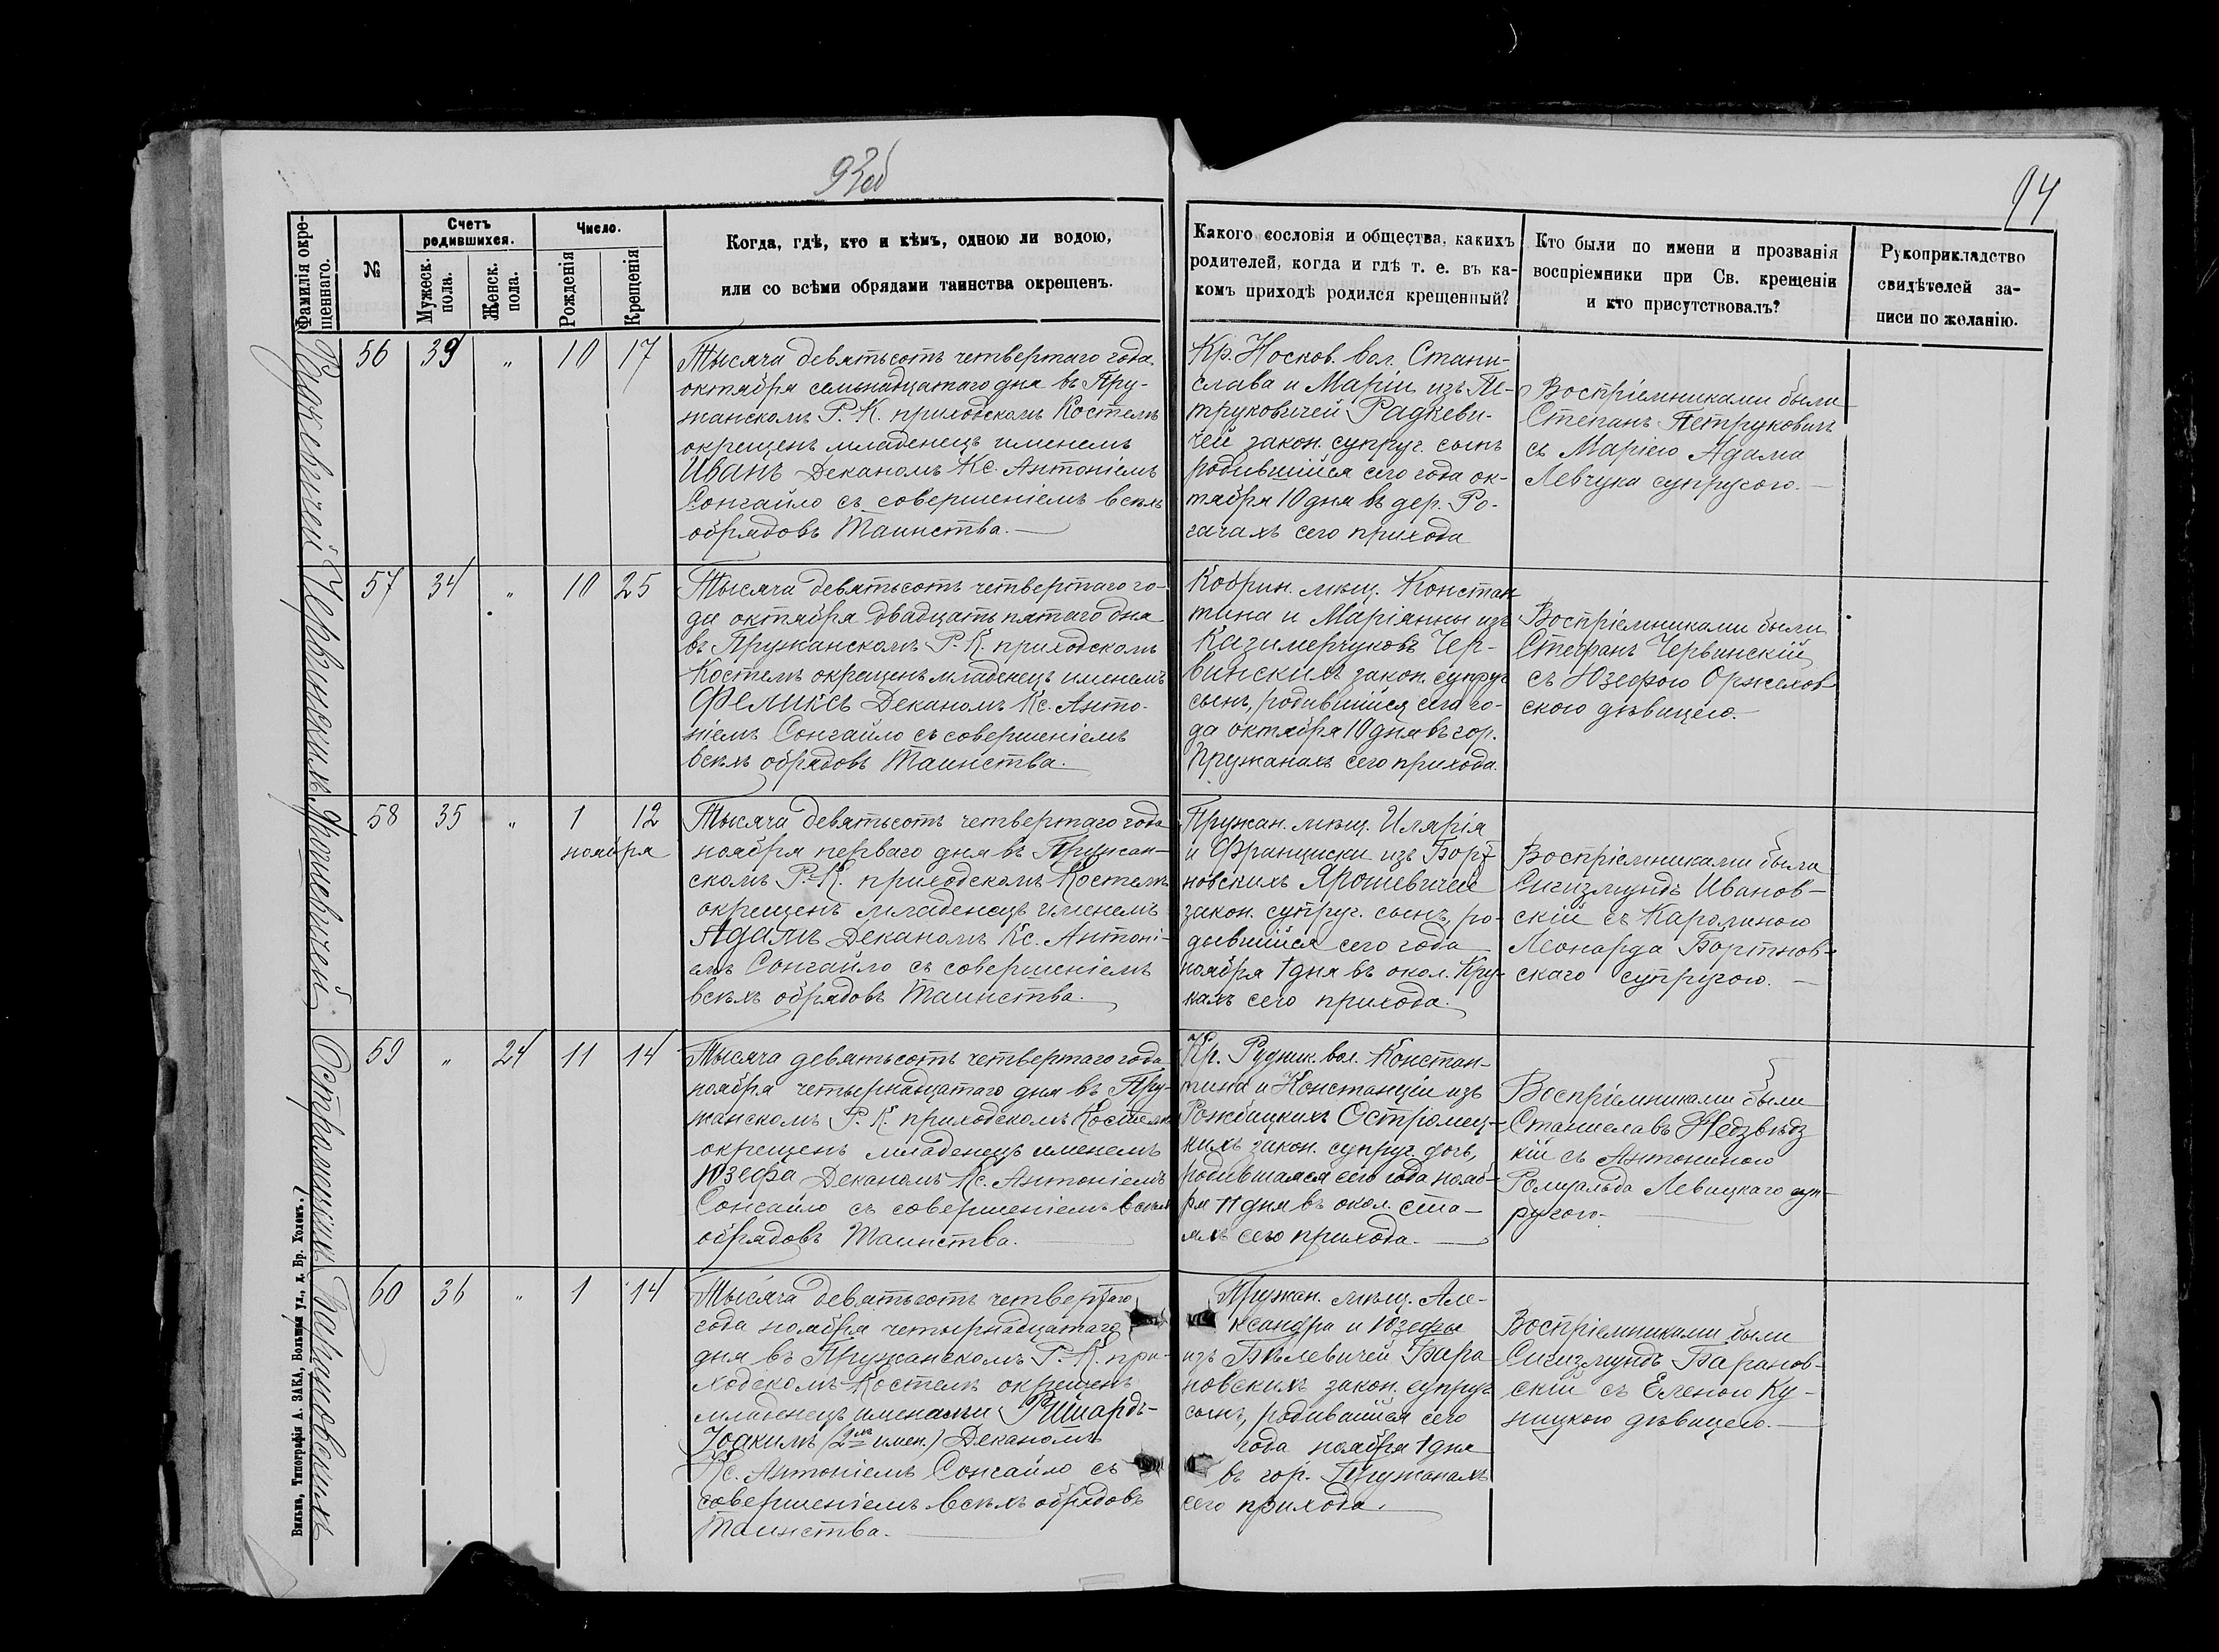 93об
94
Фамилія окрещеннаго.
№
Счетъ родившихся.
Мужеск. пола.
Женск. пола.
Число.
Рожденія
Крещенія
Когда, гдѣ, кто и кѣмъ, одною ли водою,
или со всѣми обрядами таинства окрещенъ.
Какого сословія и общества, какихъ
родителей, когда и гдѣ т. е. въ ка-
комъ приходѣ родился крещенный?
Кто были по имени и прозванія
воспріемники при Св. крещеніи
и кто присутствовалъ?
Рукоприкладство
свидѣтелей за-
писи по желанію.
Радкевичей
56 39 " 10 17
Тысяча девятьсотъ четвертаго года
октября семьнадцатаго дня въ Пру-
жанскомъ Р. К. приходскомъ Костелѣ
окрещенъ младенецъ именемъ
Иванъ Деканомъ Кс. Антоніемъ
Сонгайло съ совершеніемъ всѣхъ
обрядовъ Таинства.—
Кр. Носков. вол. Стани-
слава и Маріи изъ Пе-
труковичей Радкеви-
чей закон. супруг. сынъ
родившійся сего года ок-
тября 10 дня въ дер. Ро-
гачахъ сего прихода
Воспріемниками были
Степанъ Петруковичъ
съ Маріею Адама
Левчука супругою.—
Червинскихъ
57 34 " 10 25
Тысяча девятьсотъ четвертаго го-
да октября двадцать пятаго дня
въ Пружанскомъ Р. К. приходскомъ
Костелѣ окрещенъ младенецъ именемъ
Феликсъ Деканомъ Кс. Анто-
ніемъ Сонгайло съ совершеніемъ
всѣхъ обрядовъ Таинства.
Кобрин. мѣщ. Констан
тина и Маріянны изъ
Казимерчуковъ Чер-
винскихъ закон. супруг
сынъ, родившійся сего го-
да октября 10 дня въ гор.
Пружанахъ сего прихода.
Воспріемниками были
Стефанъ Червинскій
съ Юзефою Оржехов
скою дѣвицею.
Ярошевичей
58 35 " 1 12
ноября
Тысяча девятьсотъ четвертаго года
ноября перваго дня въ Пружан-
скомъ Р.-К. приходскомъ Костелѣ
окрещенъ младенецъ именемъ
Адамъ Деканомъ Кс. Антоні-
емъ Сонгайло съ совершеніемъ
всѣхъ обрядовъ Таинства.
Пружан. мѣщ. Илярія
и Францишки изъ Борт
новскихъ Ярошевичей
закон. супруг. сынъ, ро-
дившійся сего года
ноября 1 дня въ окол. Кру-
кахъ сего прихода.
Воспріемниками были
Сигизмундъ Иванов-
скій съ Каролиною
Леонарда Бортнов-
скаго супругою.—
Остромецкихъ
59 " 24 11 14
Тысяча девятьсотъ четвертаго года
ноября четырнадцатаго дня въ Пру-
жанскомъ Р. К. приходскомъ Костелѣ
окрещенъ младенецъ именемъ
Юзефа Деканомъ Кс. Антоніемъ
Сонгайло съ совершеніемъ всѣхъ
обрядовъ Таинства.
Кр. Рудник. вол. Констан-
тина и Констанціи изъ
Остромец-
кихъ закон. супруг. дочь,
родившаяся сего года нояб-
ря 11 дня въ окол.
сего прихода.
Воспріемниками были
Станиславъ Недзвѣдз
кій съ Антониною
Ромуальда Левицкаго суп-
ругою.
Барановскихъ
60 36 " 1 14
Тысяча девятьсотъ четвертаго
года ноября четырнадцатаго
дня въ Пружанскомъ Р. К. при-
ходскомъ Костелѣ окрещенъ
младенецъ именами Ришардъ-
Іоакимъ (2мя имен.) Деканомъ
Кс. Антоніемъ Сонгайло съ
совершеніемъ всѣхъ обрядовъ
Таинства.
Пружан. мѣщ. Але-
ксандра и Юзефы
изъ Бѣлевичей Бара
новскихъ закон. супруг
сынъ, родившійся сего
года ноября 1 дня
въ гор. Пружанахъ
сего прихода.
Воспріемниками были
Сигизмундъ Баранов-
скій съ Еленою Ку-
ницкою дѣвицею.—
Вильна, Типографія А. ЗАКА, Большая ул., д. Бр. Холемъ.